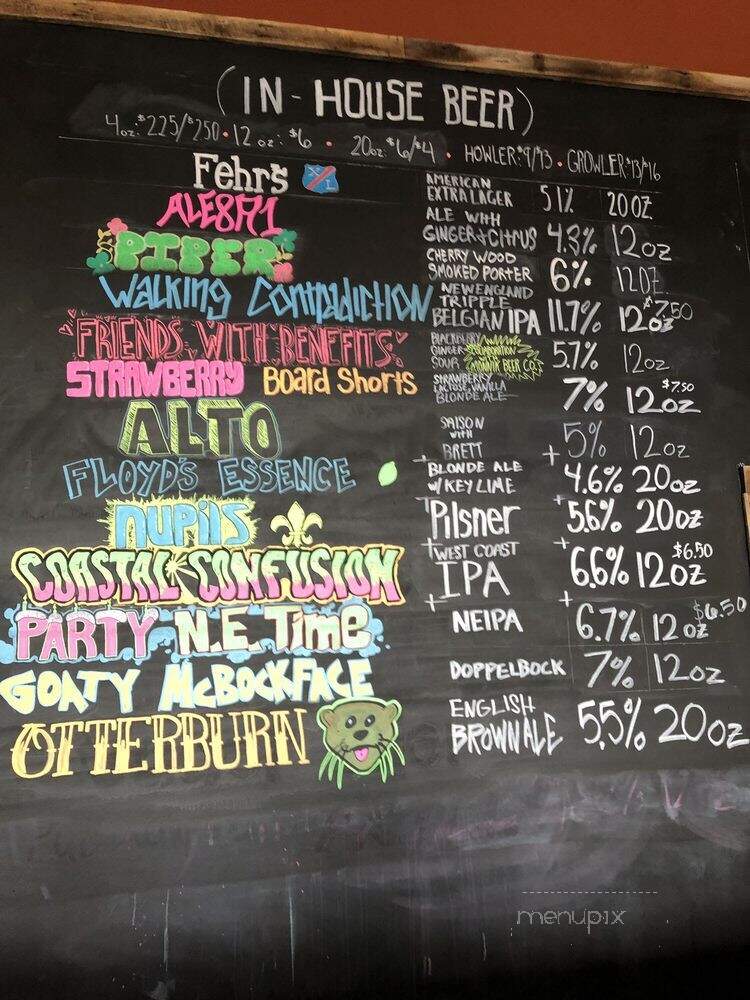 (IN-HOUSE BEER)
4oz: $225/$250 • 12oz: $6 • 20oz: $6/$4 • HOWLER: $9/$13 • GROWLER $13/$16
Fehr's XL AMERICAN EXTRA LAGER 5.1% 20OZ
ALE8A1 ALE WITH GINGER + CITRUS 4.3% 12oz
PIPER CHERRY WOOD SMOKED PORTER 6% 12OZ
WALKING CONTRADICTION NEW ENGLAND TRIPPLE BELGIAN IPA 11.7% 12oz $7.50
"FRIENDS WITH BENEFITS" BLACKBERRY GINGER SOUR COLLABORATION BEER CO. 5.7% 12oz
STRAWBERRY Board Shorts STRAWBERRY LACTOSE, VANILLA BLONDE ALE 7% 12oz $7.50
ALTO SAISON with BRETT 5% 12oz
FLOYD'S ESSENCE BLONDE ALE w/ KEY LIME 4.6% 20oz
NUPilS Pilsner 5.6% 20oz
COASTAL CONFUSION WEST COAST IPA 6.6% 12oz $6.50
PARTY N.E. Time NEIPA 6.7% 12oz $6.50
GOATY McBOCKFACE DOPPELBOCK 7% 12oz
OTTERBURN ENGLISH BROWN ALE 5.5% 20oz
menupix